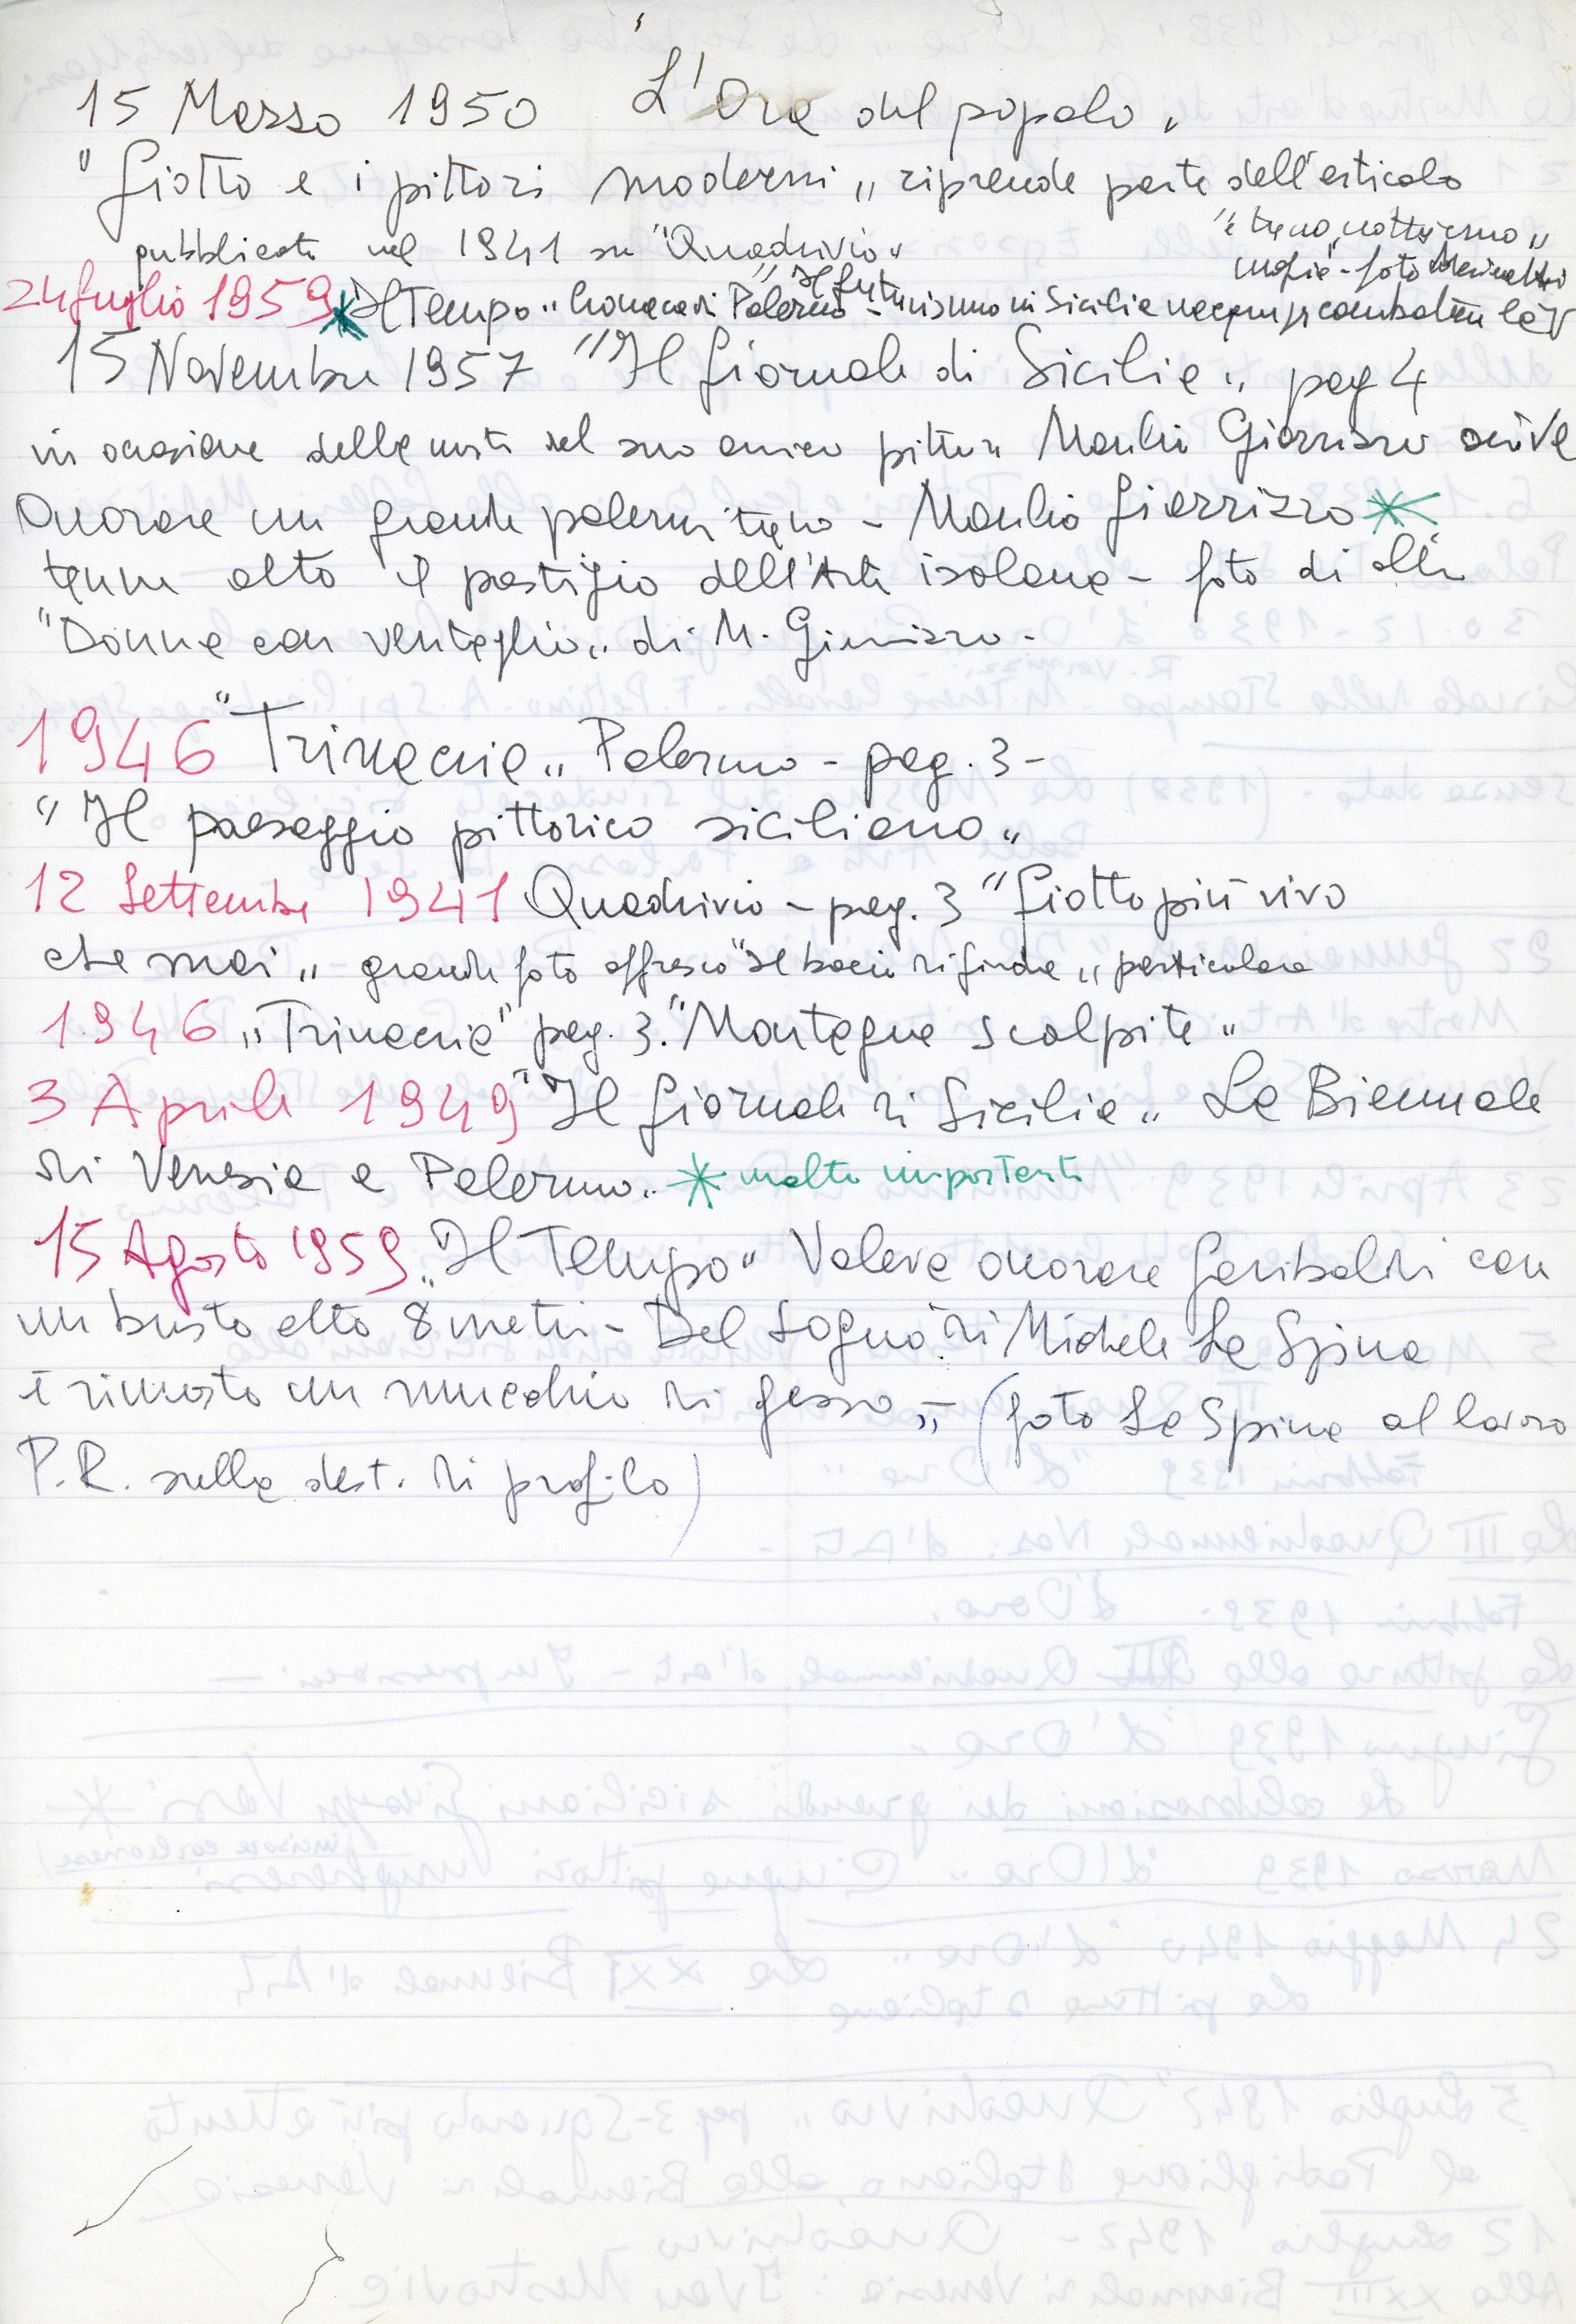 15 Marzo 1950 L'Ora del popolo„
"Giotto e i pittori moderni„ riprende parte dell'articolo
pubblicato nel 1941 su "Quadrivio„
"treno notturno„
foto Marinetti
24 Luglio 1959 * Il Tempo„ Cronaca di Palermo - "Il futurismo in Sicilia
15 Novembre 1957 "Il Giornale di Sicilia„ pag 4
in occasione della del suo amico pittore Manlio Giarrizzo scrive
Onorare un grande palermitano - Manlio Giarrizzo *
tenne alto il prestigio dell'Arte isolana - foto di
"Donna con ventaglio„ di M. Giarrizzo -
1946 "Trinacria„ Palermo - pag. 3 -
"Il paesaggio pittorico siciliano„
12 Settembre 1941 Quadrivio - pag. 3 "Giotto più vivo
che mai„ grande foto affresco "Il bacio di Giuda„ particolare
1946 „Trinacria" pag. 3. "Montagne scolpite„
3 Aprile 1949 "Il Giornale di Sicilia„ La Biennale
di Venezia e Palermo„ * molto importante
15 Agosto 1959 „Il Tempo" Voleva onorare Garibaldi con
un busto alto 8 metri - Del sogno di Michele La Spina
è rimasto un mucchio di gesso„ - (foto La Spina al lavoro
P.R. sulla dest. di profilo)